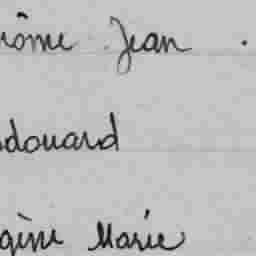 rôme Jean.
douard
gène Marie